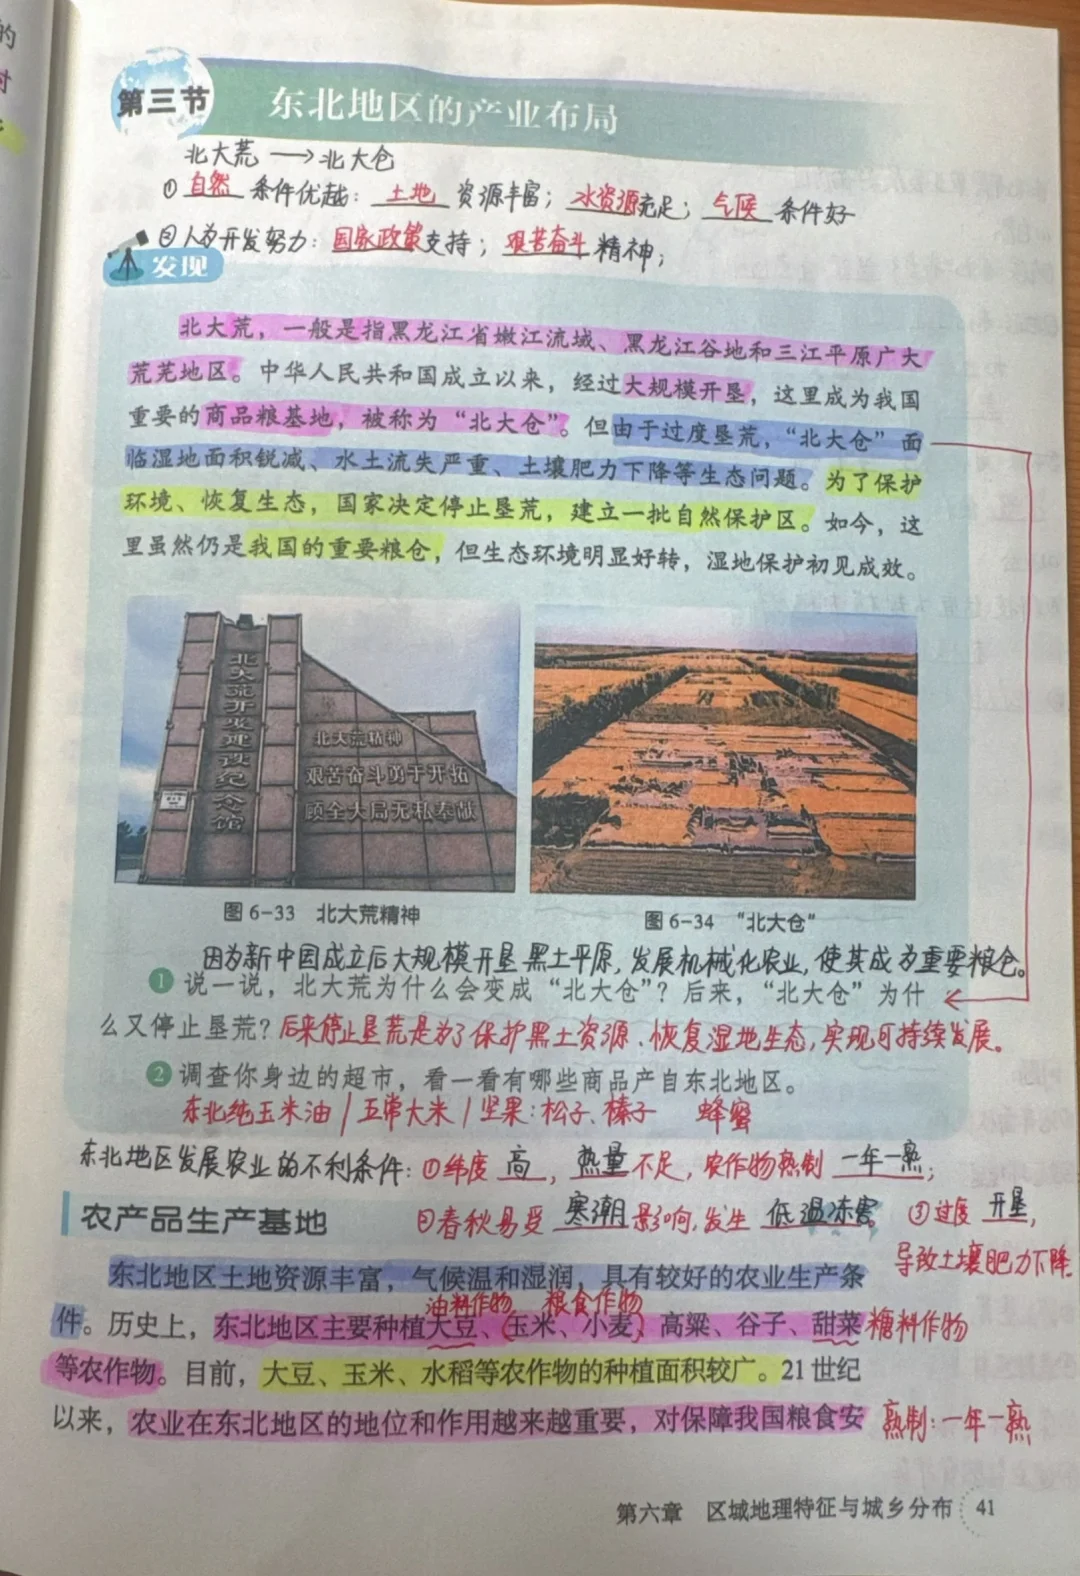 的
时
第三节 东北地区的产业布局
北大荒 → 北大仓
① 自然 条件优越：土地 资源丰富；水资源充足；气候 条件好
② 人为开发努力：国家政策支持；艰苦奋斗精神；
发现
北大荒，一般是指黑龙江省嫩江流域、黑龙江谷地和三江平原广大
荒芜地区。中华人民共和国成立以来，经过大规模开垦，这里成为我国
重要的商品粮基地，被称为“北大仓”。但由于过度垦荒，“北大仓”面
临湿地面积锐减、水土流失严重、土壤肥力下降等生态问题。为了保护
环境、恢复生态，国家决定停止垦荒，建立一批自然保护区。如今，这
里虽然仍是我国的重要粮仓，但生态环境明显好转，湿地保护初见成效。
北大荒开发建设纪念馆
北大荒精神
艰苦奋斗勇于开拓
顾全大局无私奉献
图 6-33 北大荒精神
图 6-34 “北大仓”
因为新中国成立后大规模开垦黑土平原，发展机械化农业，使其成为重要粮仓。
① 说一说，北大荒为什么会变成“北大仓”？后来，“北大仓”为什
么又停止垦荒？后来停止垦荒是为了保护黑土资源、恢复湿地生态，实现可持续发展。
② 调查你身边的超市，看一看有哪些商品产自东北地区。
东北纯玉米油/五常大米/坚果：松子、榛子 蜂蜜
东北地区发展农业的不利条件：①纬度 高，热量不足，农作物熟制 一年一熟；
农产品生产基地
②春秋易受 寒潮 影响，发生 低温冻害。 ③过度 开垦，
导致土壤肥力下降
东北地区土地资源丰富，气候温和湿润，具有较好的农业生产条
油料作物 粮食作物
件。历史上，东北地区主要种植大豆、玉米、小麦、高粱、谷子、甜菜 糖料作物
等农作物。目前，大豆、玉米、水稻等农作物的种植面积较广。21 世纪
以来，农业在东北地区的地位和作用越来越重要，对保障我国粮食安 熟制：一年一熟
第六章 区域地理特征与城乡分布 41